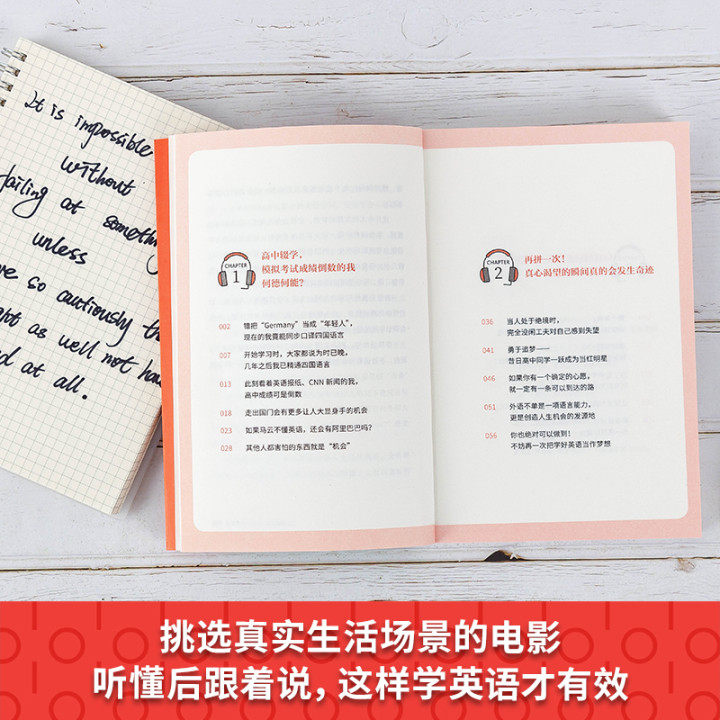 It is impossible
without
failing at something
unless
so cautiously
as well not
at all.
CHAPTER
1
高中辍学，
模拟考试成绩倒数的我
何德何能？
002 错把“Germany”当成“年轻人”，
现在的我竟能同步口译四国语言
007 开始学习时，大家都说为时已晚，
几年之后我已精通四国语言
013 此刻看着英语报纸、CNN 新闻的我，
高中成绩可是倒数
018 走出国门会有更多让人大显身手的机会
023 如果马云不懂英语，还会有阿里巴巴吗？
028 其他人都害怕的东西就是“机会”
CHAPTER
2
再拼一次！
真心渴望的瞬间真的会发生奇迹
036 当人处于绝境时，
完全没闲工夫对自己感到失望
041 勇于追梦——
昔日高中同学一跃成为当红明星
046 如果你有一个确定的心愿，
就一定有一条可以到达的路
051 外语不单是一项语言能力，
更是创造人生机会的发源地
056 你也绝对可以做到！
不妨再一次把学好英语当作梦想
挑选真实生活场景的电影
听懂后跟着说，这样学英语才有效